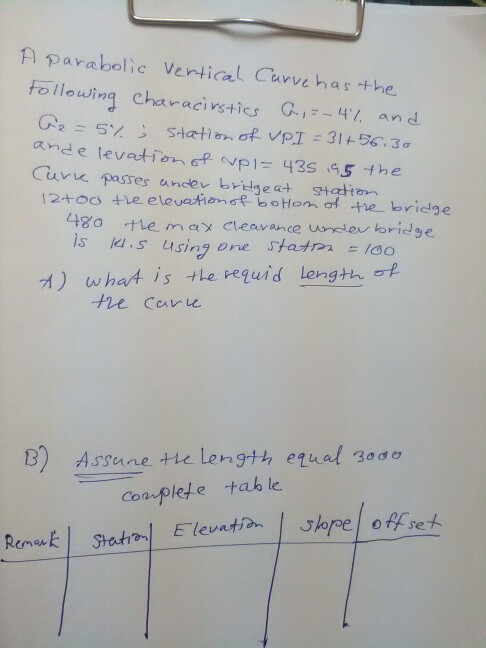 A parabolic Vertical Curve has the
Following characirstics G1 = -4% and
G2 = 5% ; station of VPI = 31+56.30
ande levation of vpI = 435.95 the
Curve passes under bridge at station
12+00 the elevation of bottom of the bridge
480 the max clearance under bridge
is 14.5 using one station = 100
A) what is the requid length of
the curve
B) Assume the Length equal 3000
complete table
Remark Station Elevation slope offset